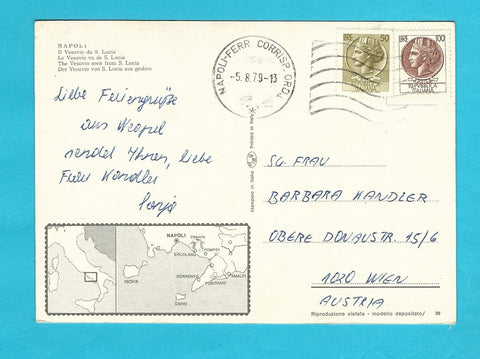 NAPOLI
Il Vesuvio da S. Lucia
Le Vesuve vu de S. Lucia
The Vesuve seen from S. Lucia
Der Vesuv von S. Lucia aus gesehen
Liebe Feriengrüße
aus Neapel
sendet Ihnen, liebe
Frau Kandler
Sonja
NAPOLI-FERR CORRISP. ORD.
-5.8.79-13
LIRE 50
ITALIANA
LIRE 100
REPVBBLICA
ITALIANA
Stampato in Italia
Printed in Italy
SG. FRAU
BARBARA KANDLER
OBERE DONAUSTR. 15/6
1020 WIEN
AUSTRIA
NAPOLI
Vesuvio
ERCOLANO
POMPEI
SORRENTO
AMALFI
POSITANO
ISCHIA
CAPRI
Riproduzione vietata - modello depositato/ 30